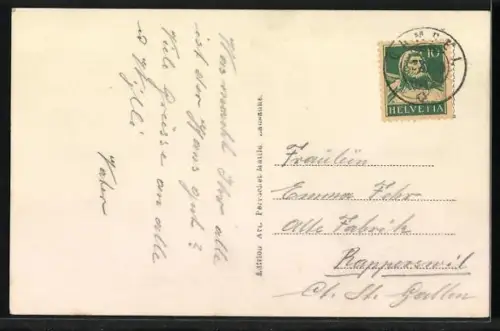 Was macht Ihr alle
ist der Hans gut ?
Viele Grüsse an alle
Vater
Edition Art. Perrochet-Matile, Lausanne.
10
HELVETIA
Fräulein
Emma Fehr
Alte Fabrik
Rapperswil
Ct. St. Gallen